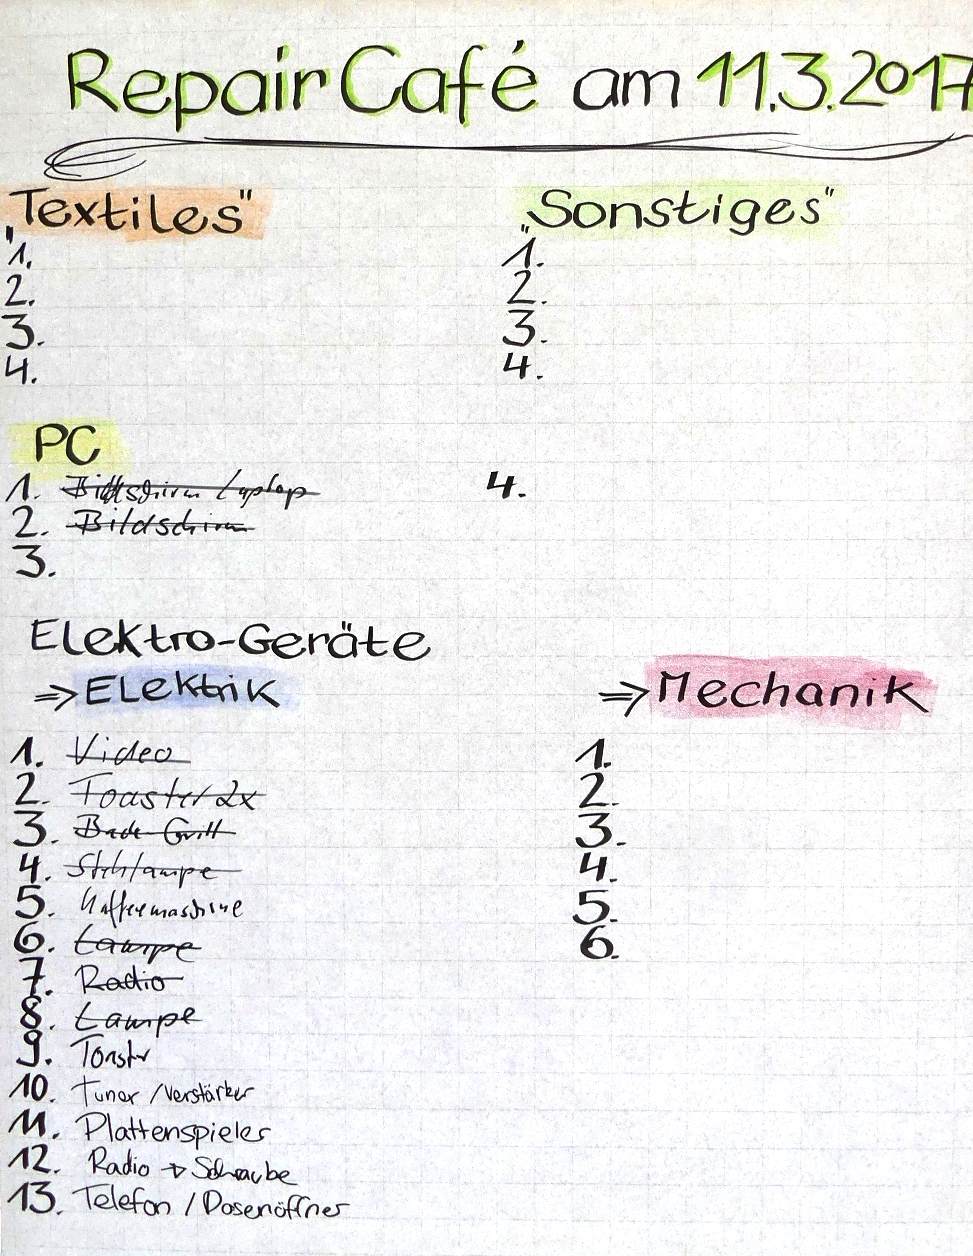 Repair Café am 11.3.2017
„Textiles"
1.
2.
3.
4.
„Sonstiges"
1.
2.
3.
4.
PC
1. Bildschirm Laptop
2. Bildschirm
3.
4.
Elektro-Geräte
⇒ Elektrik
1. Video
2. Toaster 2x
3. Grill
4. Stehlampe
5. Kaffeemaschine
6. Lampe
7. Radio
8. Lampe
9. Toaster
10. Tuner / Verstärker
11. Plattenspieler
12. Radio → Schraube
13. Telefon / Dosenöffner
⇒ Mechanik
1.
2.
3.
4.
5.
6.